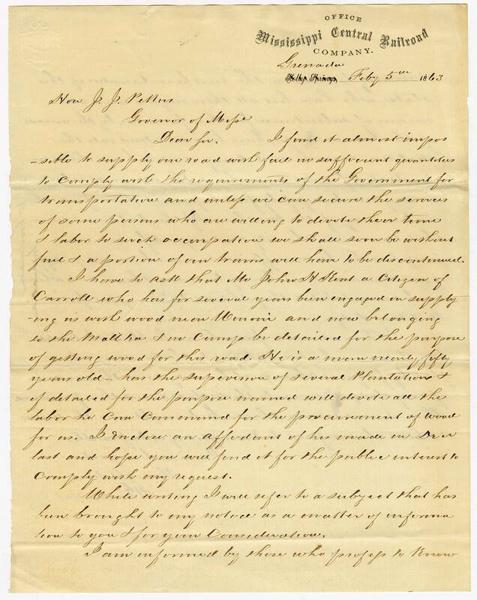 OFFICE
Mississippi Central Railroad
COMPANY.
Grenada
Feby 5th 1863
Hon J. J. Pettus
Govenor of Mipi
Dear Sir. I find it almost impos
-sible to supply our road with fuel in sufficient quantities
to comply with the requirements of the Government for
transportation and unless we can secure the services
of some persons who are willing to devote their time
& labor to such occupation we shall soon be without
fuel & a portion of our trains will have to be discontinued.
I have to ask that Mr John H Kent a Citizen of
Carroll who has for several years been engaged in supply
ing us with wood near Winona and now belonging
to the Malitia & in Camp be detailed for the purpose
of getting wood for this road. He is a man nearly fifty
years old - has the supervision of several Plantations &
if detailed for the purpose named will devote all the
labor he Can Command for the procurement of wood
for us. I Enclose an affidavit of his made in Decr
last and hope you will find it for the public interest to
Comply with my request.
While writing I will refer to a subject that has
been brought to my notice as a matter of informa
tion to you & for your Consideration.
I am informed by those who profess to Know